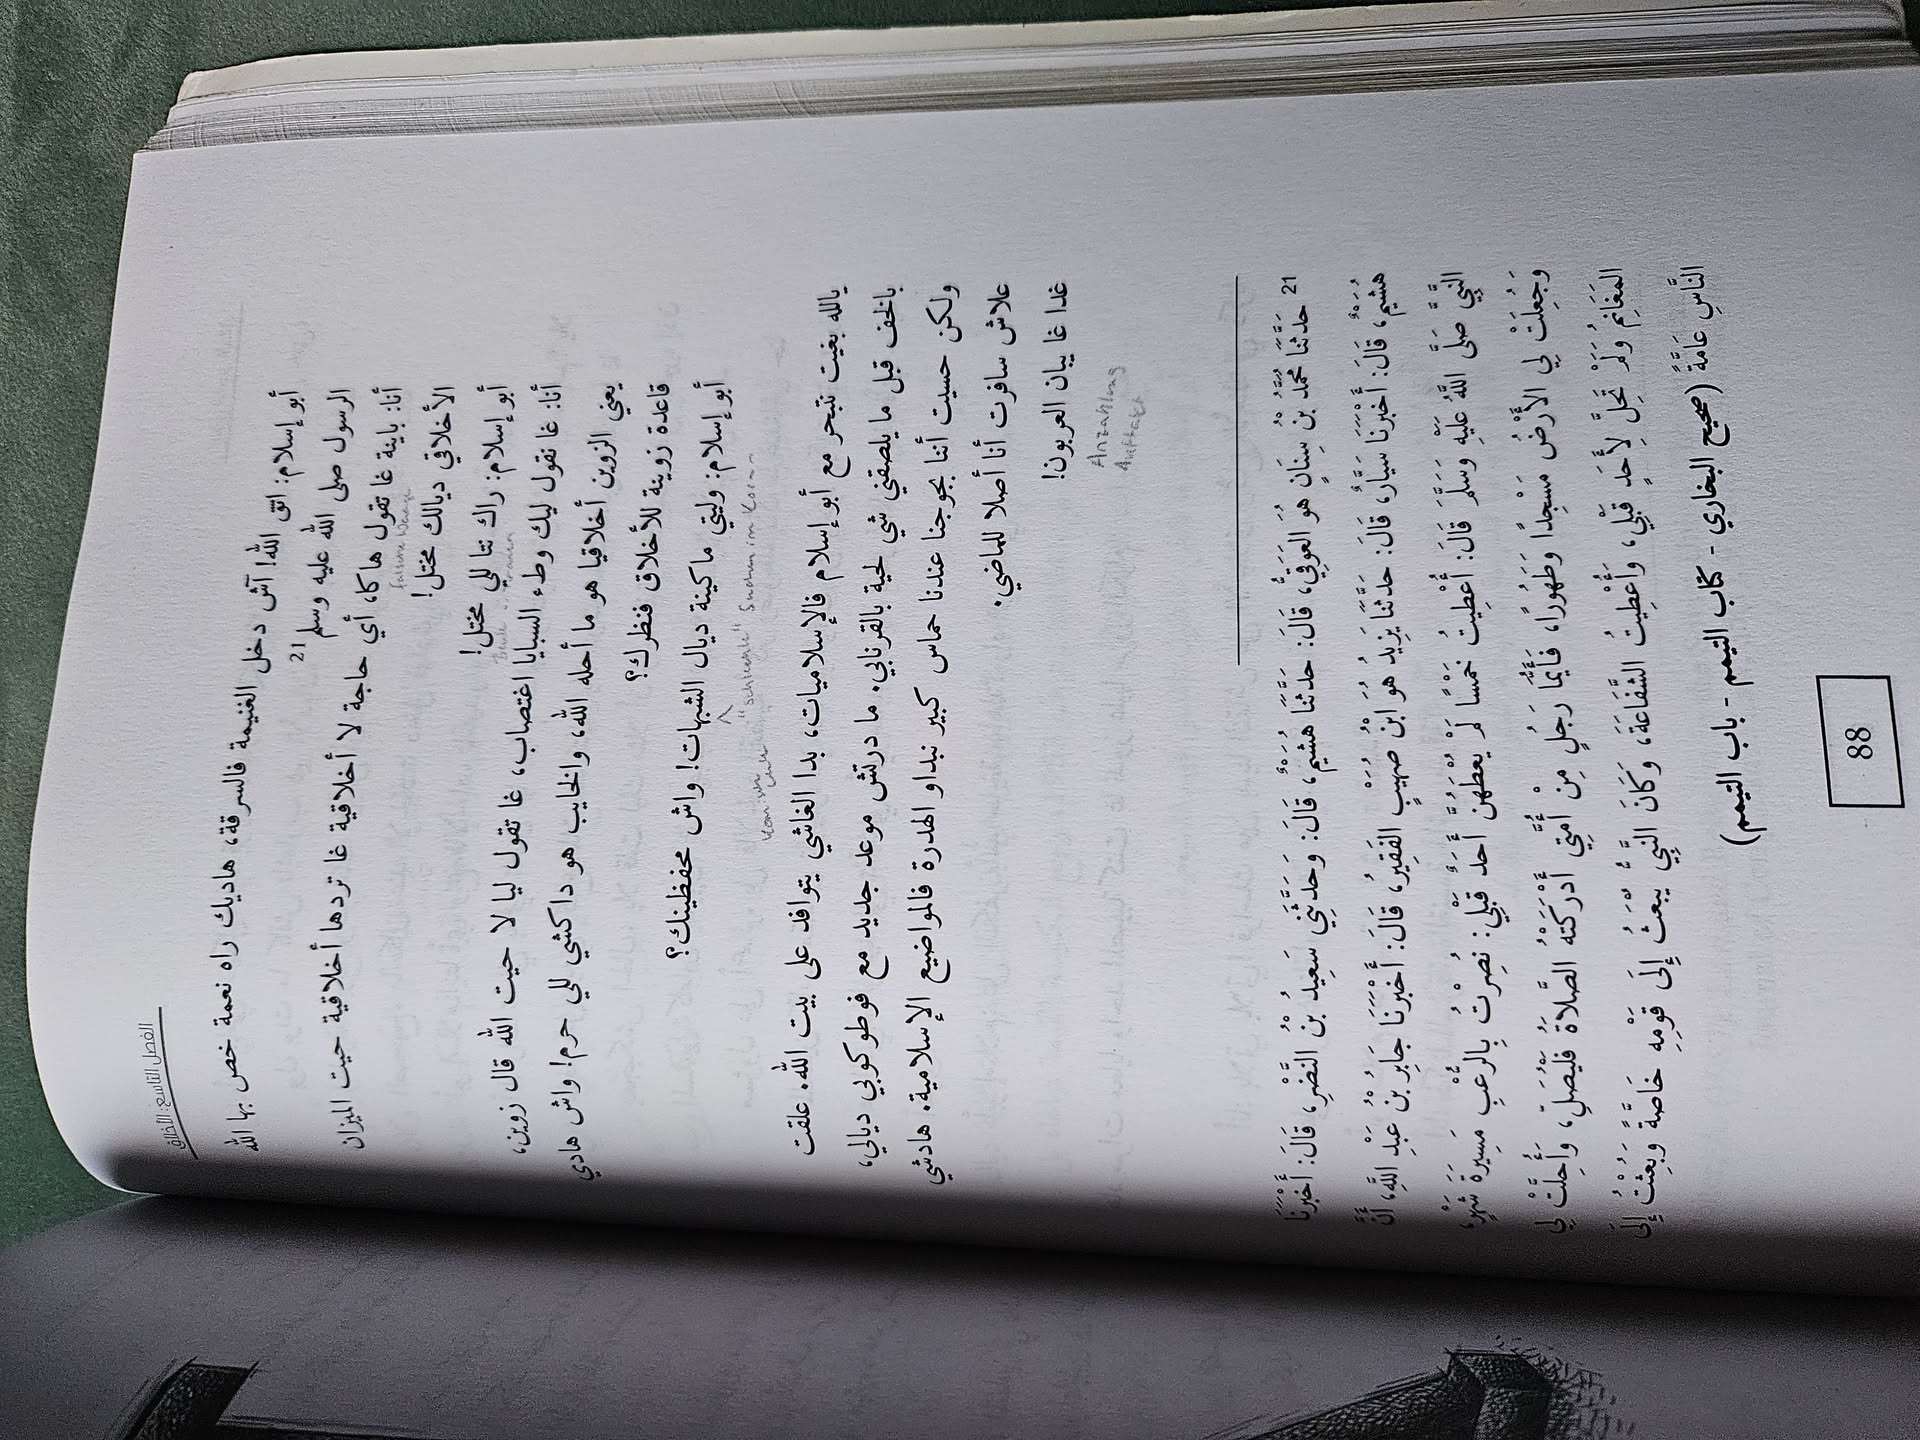 الفصل التاسع: الأخلاق
أبو إسلام: اتق الله! آش دخل الغنيمة فالسرقة، هاديك راه نعمة خص بها الله
الرسول صلى الله عليه وسلم 21
أنا: باينة غا تقول هاكا، أي حاجة لا أخلاقية غا تردها أخلاقية حيت الميزان
falsche Waage
الأخلاقي ديالك مختل!
أبو إسلام: راك نتا للي مختل!
أنا: غا نقول ليك وطء السبايا اغتصاب، غا تقول ليا لا حيت الله قال زوين،
يعني الزوين أخلاقيا هو ما أحله الله، والخايب هو داكشي للي حرم! واش هادي
قاعدة زوينة للأخلاق فنظرك؟
أبو إسلام: وليتي ماكينة ديال الشبهات! واش محفظينك؟
"Schleuche" Suchen im Koran
يالله بغيت نتبحر مع أبو إسلام فالإسلاميات، بدا الغاشي يتوافد على بيت الله. علقت
بالخف قبل ما يلصقني شي لحية بالقرنابي. ما درتش موعد جديد مع فوطوكوبي ديالي،
ولكن حسيت أننا بجوجنا عندنا حماس كبير نبداو الهدرة فالمواضيع الإسلامية. هادشي
علاش سافرت أنا أصلا للماضي.
غدا غا يبان العربون!
Anzahlung
Auftakt
21 حَدَّثَنَا مُحَمَّدُ بْنُ سِنَانٍ هُوَ العَوَقِيُّ، قَالَ: حَدَّثَنَا هُشَيْمٌ، قَالَ: وَحَدَّثَنِي سَعِيدُ بْنُ النَّضْرِ، قَالَ: أَخْبَرَنَا
هُشَيْمٌ، قَالَ: أَخْبَرَنَا سَيَّارٌ، قَالَ: حَدَّثَنَا يَزِيدُ هُوَ ابْنُ صُهَيْبٍ الفَقِيرُ، قَالَ: أَخْبَرَنَا جَابِرُ بْنُ عَبْدِ اللَّهِ، أَنَّ
النَّبِيَّ صَلَّى اللَّهُ عَلَيْهِ وَسَلَّمَ قَالَ: أُعْطِيتُ خَمْسًا لَمْ يُعْطَهُنَّ أَحَدٌ قَبْلِي: نُصِرْتُ بِالرُّعْبِ مَسِيرَةَ شَهْرٍ،
وَجُعِلَتْ لِي الأَرْضُ مَسْجِدًا وَطَهُورًا، فَأَيُّمَا رَجُلٍ مِنْ أُمَّتِي أَدْرَكَتْهُ الصَّلاَةُ فَلْيُصَلِّ، وَأُحِلَّتْ لِي
المَغَانِمُ وَلَمْ تَحِلَّ لِأَحَدٍ قَبْلِي، وَأُعْطِيتُ الشَّفَاعَةَ، وَكَانَ النَّبِيُّ يُبْعَثُ إِلَى قَوْمِهِ خَاصَّةً وَبُعِثْتُ إِلَى
النَّاسِ عَامَّةً (صحيح البخاري - كتاب التيمم - باب التيمم)
88